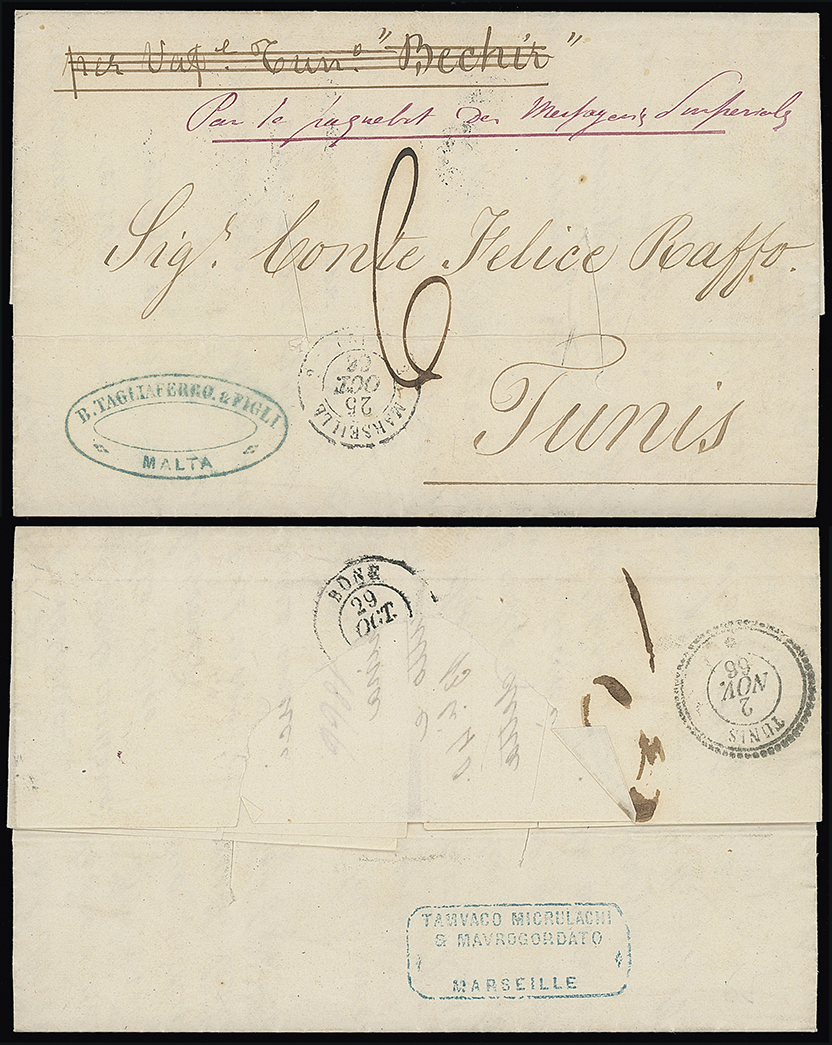 per Vap.e Tun.o "Bechir"
Par le paquebot des Messageries Impériales
6
Sig.r Conte Felice Raffo.
Tunis
B. TAGLIAFERRO. & FIGLI
MALTA
MARSEILLE
25
OCT.
66
BONE
29
OCT.
TUNIS
2
NOV.
66
TAMVACO MICRULACHI
& MAVROGORDATO
MARSEILLE